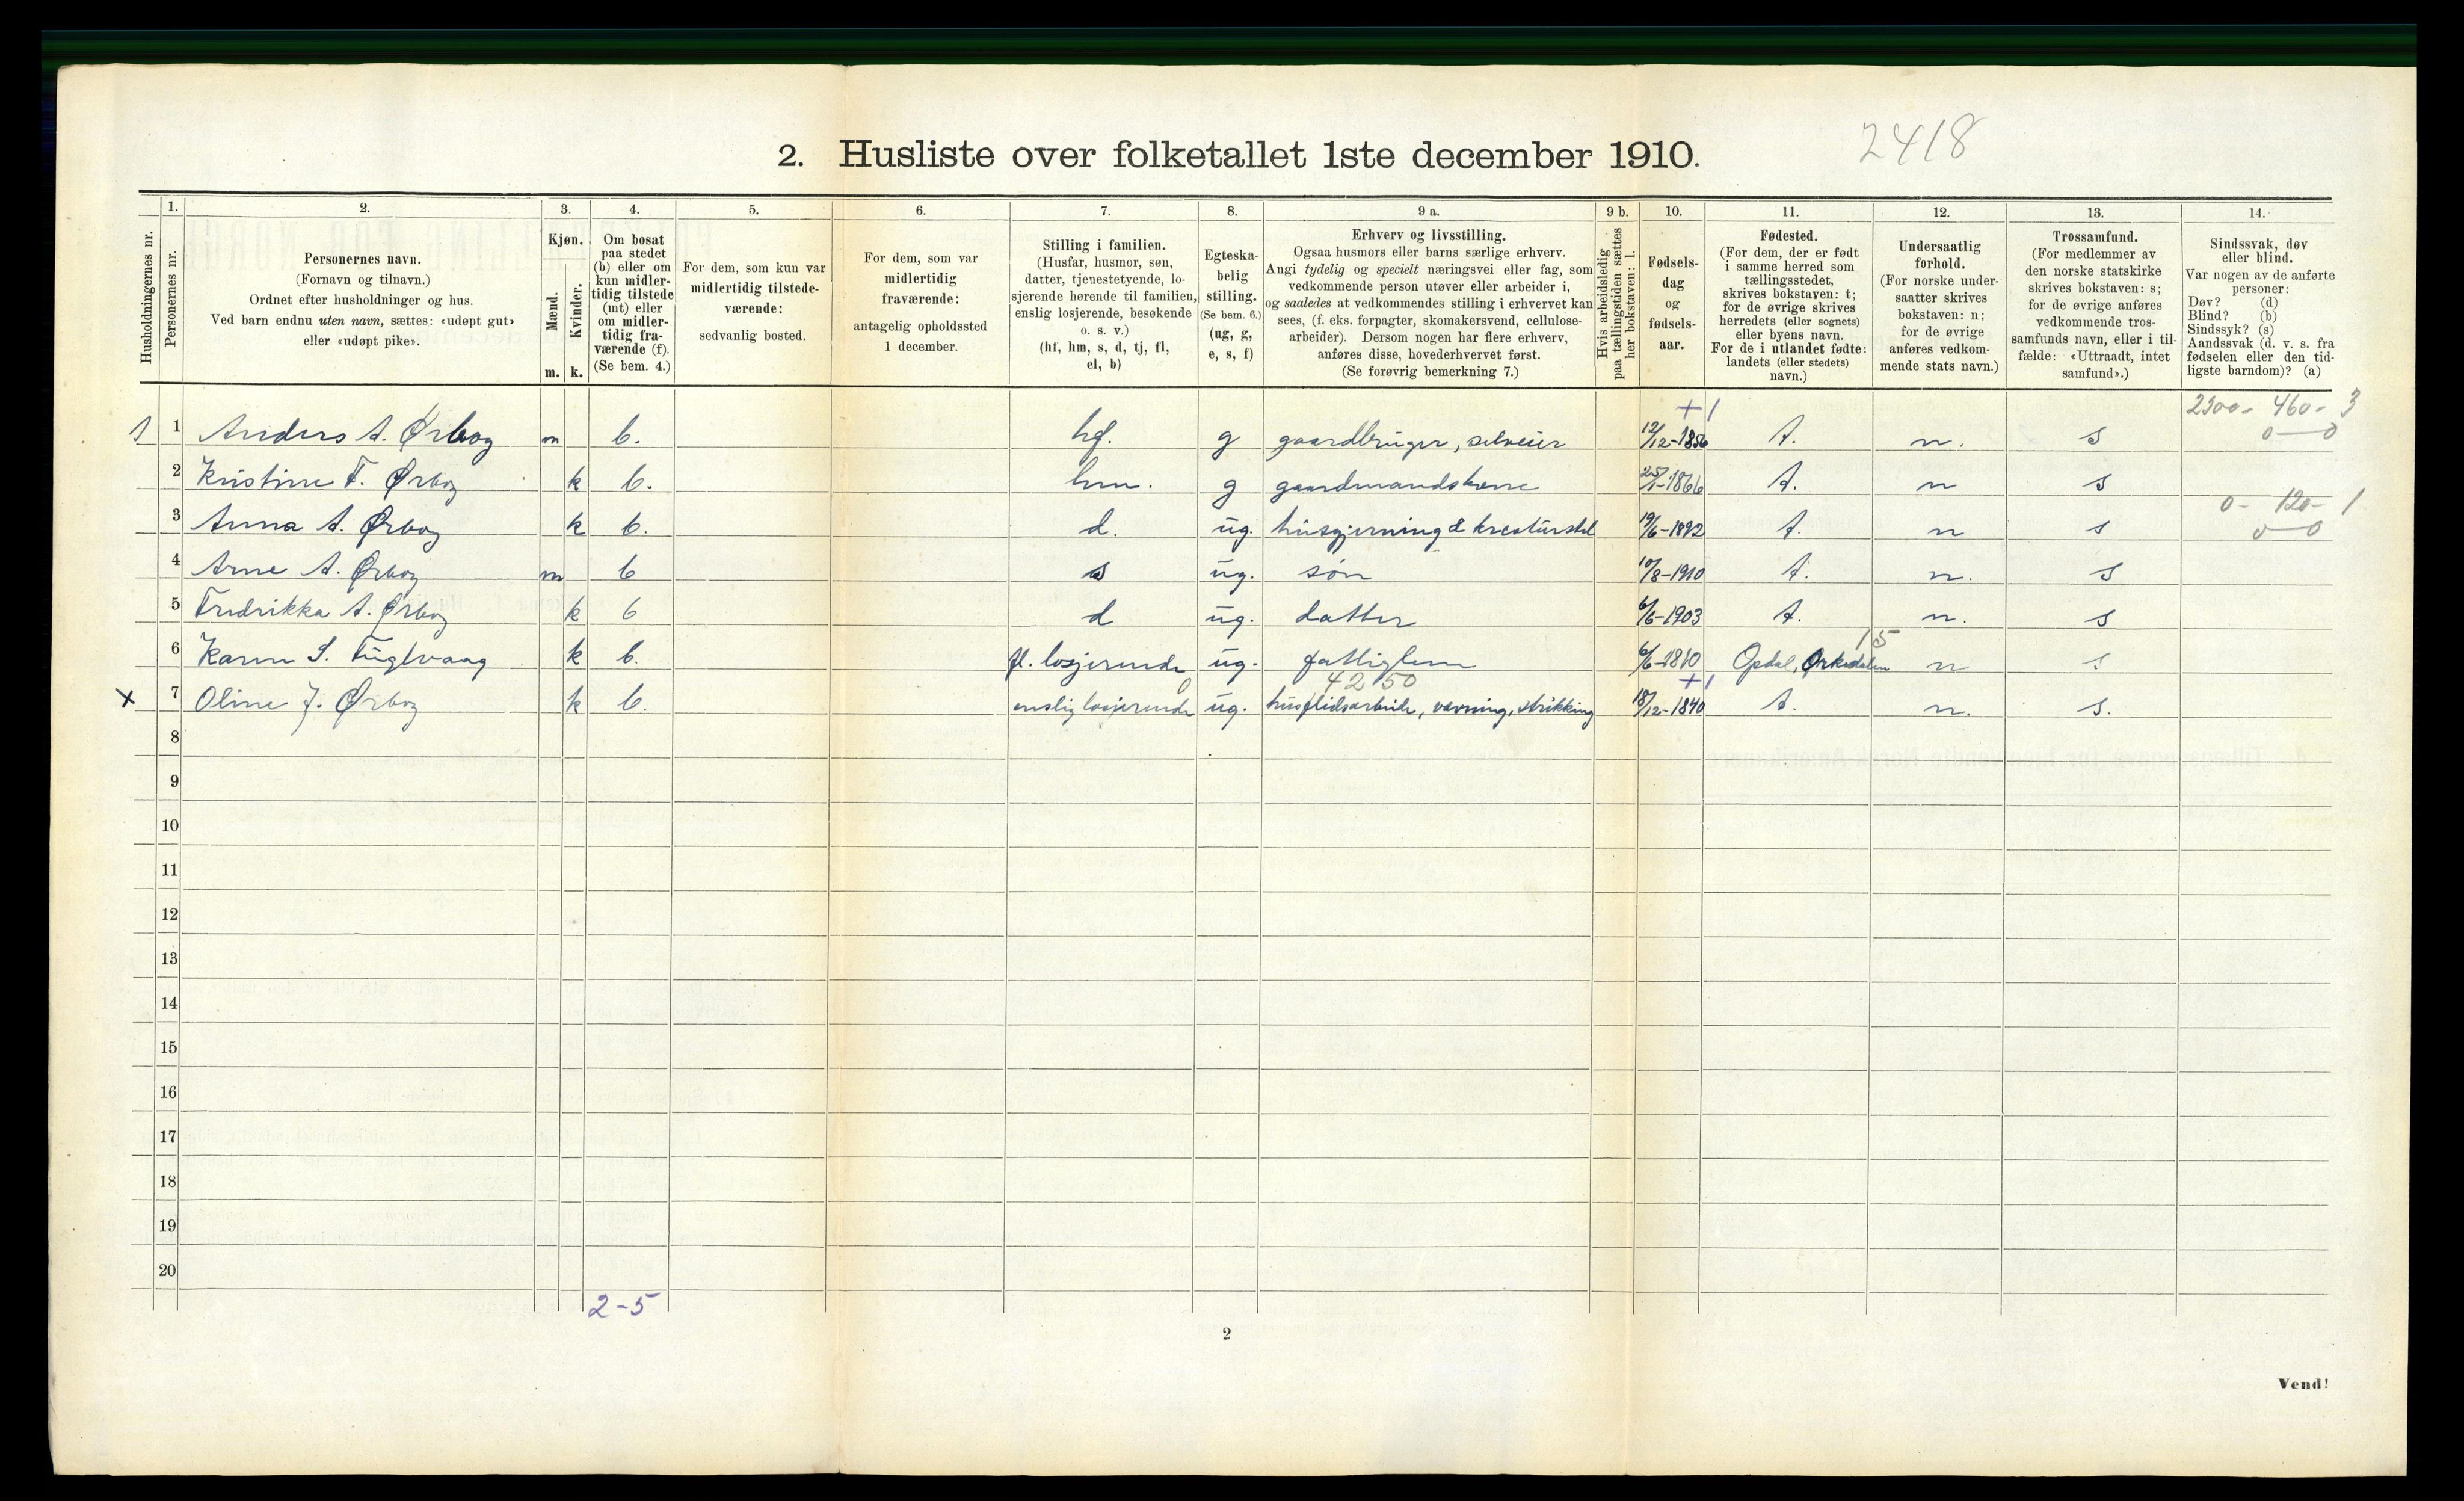 2. Husliste over folketallet 1ste december 1910.
2418
Husholdningernes nr.
1. Personernes nr.
2. Personernes navn.
(Fornavn og tilnavn.)
Ordnet efter husholdninger og hus.
Ved barn endnu uten navn, sættes: «udøpt gut»
eller «udøpt pike».
3. Kjøn.
Mænd. m.
Kvinder. k.
4. Om bosat
paa stedet
(b) eller om
kun midler-
tidig tilstede
(mt) eller
om midler-
tidig fra-
værende (f).
(Se bem. 4.)
5. For dem, som kun var
midlertidig tilstede-
værende:
sedvanlig bosted.
6. For dem, som var
midlertidig
fraværende:
antagelig opholdssted
1 december.
7. Stilling i familien.
(Husfar, husmor, søn,
datter, tjenestetyende, lo-
sjerende hørende til familien,
enslig losjerende, besøkende
o. s. v.)
(hf, hm, s, d, tj, fl,
el, b)
8. Egteska-
belig
stilling.
(Se bem. 6.)
(ug, g,
e, s, f)
9 a. Erhverv og livsstilling.
Ogsaa husmors eller barns særlige erhverv.
Angi tydelig og specielt næringsvei eller fag, som
vedkommende person utøver eller arbeider i,
og saaledes at vedkommendes stilling i erhvervet kan
sees, (f. eks. forpagter, skomakersvend, cellulose-
arbeider). Dersom nogen har flere erhverv,
anføres disse, hovederhvervet først.
(Se forøvrig bemerkning 7.)
9 b. Hvis arbeidsledig
paa tællingstiden sættes
her bokstaven: l.
10. Fødsels-
dag
og
fødsels-
aar.
11. Fødested.
(For dem, der er født
i samme herred som
tællingsstedet,
skrives bokstaven: t;
for de øvrige skrives
herredets (eller sognets)
eller byens navn.
For de i utlandet fødte:
landets (eller stedets)
navn.)
12. Undersaatlig
forhold.
(For norske under-
saatter skrives
bokstaven: n;
for de øvrige
anføres vedkom-
mende stats navn.)
13. Trossamfund.
(For medlemmer av
den norske statskirke
skrives bokstaven: s;
for de øvrige anføres
vedkommende tros-
samfunds navn, eller i til-
fælde: «Uttraadt, intet
samfund».)
14. Sindssvak, døv
eller blind.
Var nogen av de anførte
personer:
Døv? (d)
Blind? (b)
Sindssyk? (s)
Aandssvak (d. v. s. fra
fødselen eller den tid-
ligste barndom)? (a)
+1 2300- 460- 3
1 1 Anders A. Ørbog m b. hf. g gaardbruger, selveier 12/12-1856 t. n. s 0—0
2 Kristine F. Ørbog k b. hm. g gaardmandskone 25/1-1866 t. n s
0- 120- 1
3 Anna A. Ørbog k b. d. ug. husgjerning & kreaturstel 19/6-1892 t. n s 0—0
4 Arne A. Ørbog m b s ug. søn 10/8-1910 t. n. s
5 Fredrikka A. Ørbog k b d ug. datter 6/6-1903 t. n. s
15
6 Karen S. Fuglvaag k b. fl. losjerende ug. fattiglem 6/6-1810 Opdal, Orkedalen n s
0 42 50 +1
x 7 Oline J. Ørbog k b. enslig losjerende ug. husflidsarbeide, vævning, strikking 18/12-1840 t. n. s.
8
9
10
11
12
13
14
15
16
17
18
19
20
2-5
2
Vend!